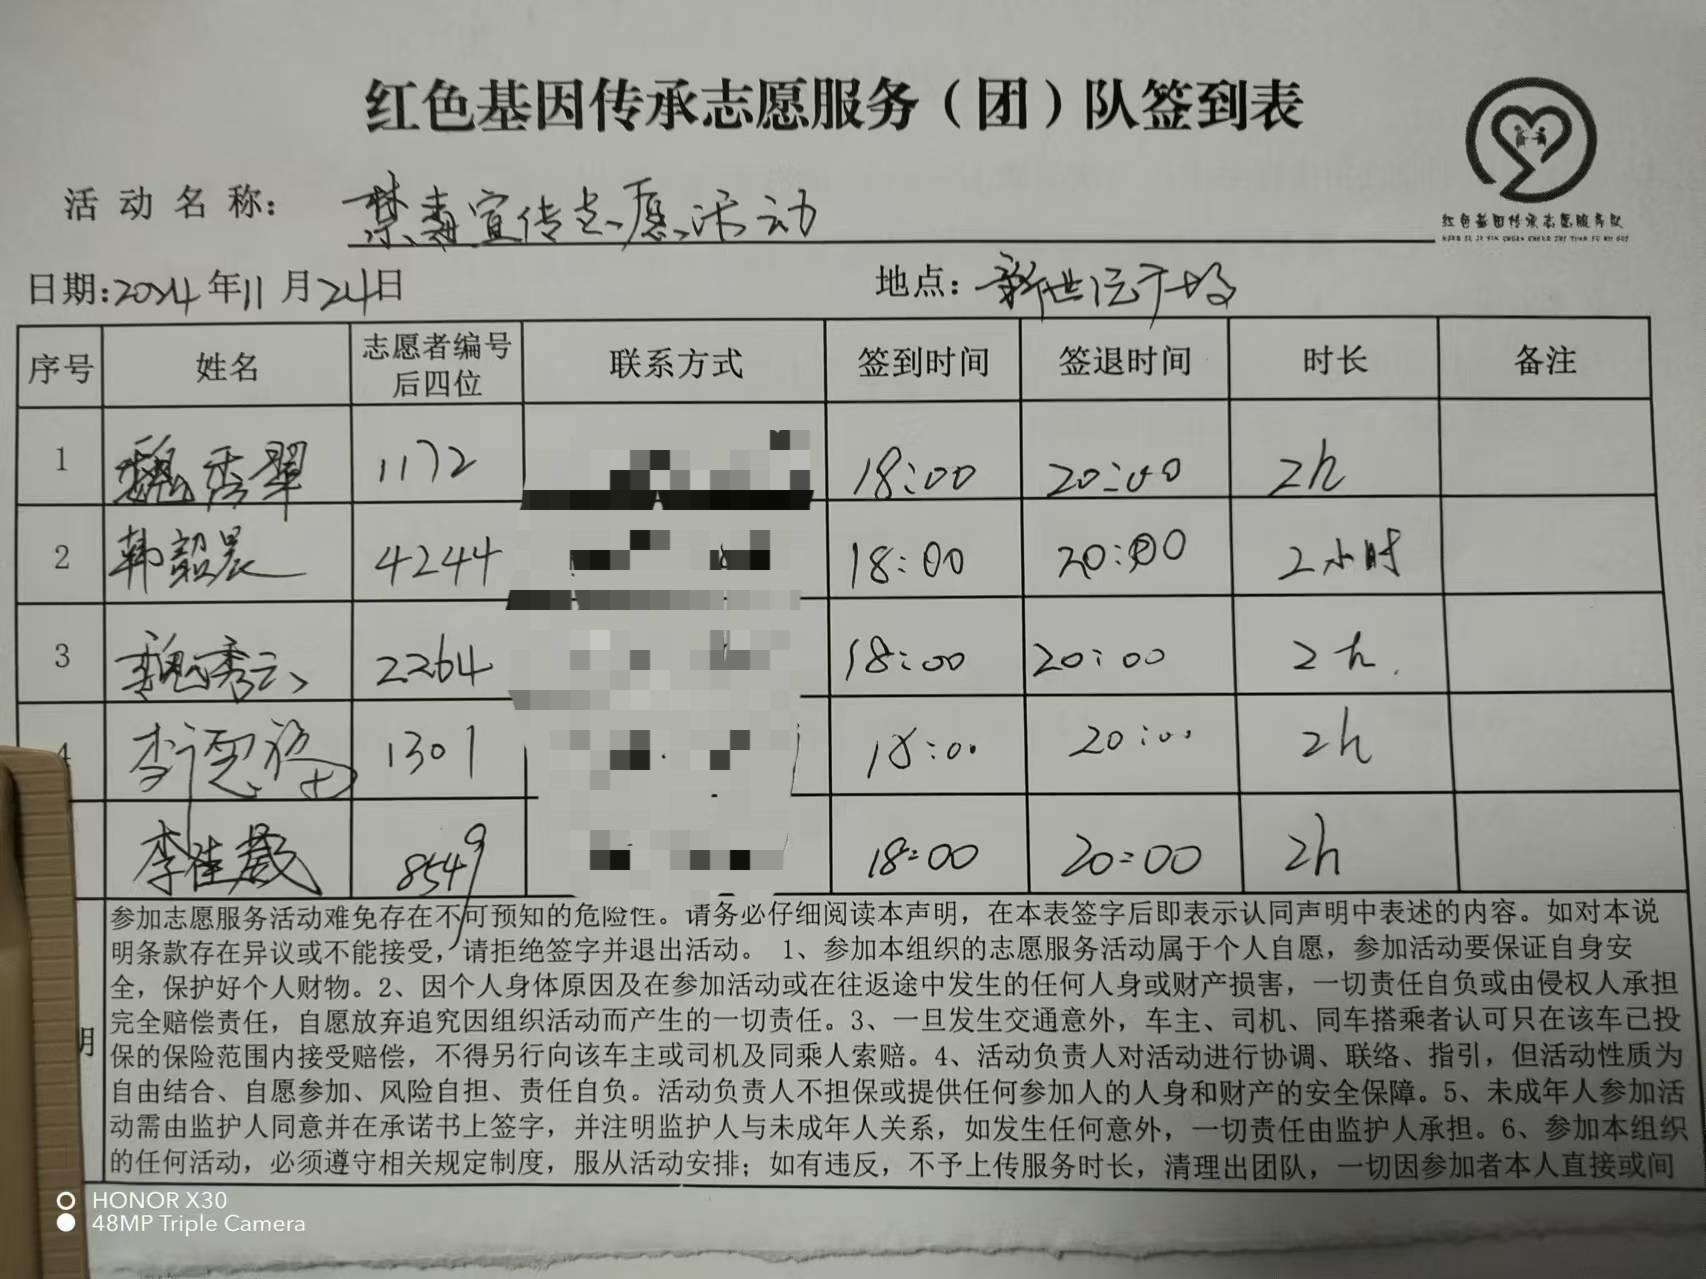 红色基因传承志愿服务（团）队签到表
红色基因传承志愿服务队
活动名称： 禁毒宣传志愿活动
日期：2024年11月24日 地点：新世纪广场
序号 姓名 志愿者编号后四位 联系方式 签到时间 签退时间 时长 备注
1 魏秀翠 1172 18:00 20:00 2h
2 韩韶晨 4244 18:00 20:00 2小时
3 魏秀云 2264 18:00 20:00 2h.
4 李德福 1301 18:00 20:00 2h
李佳葳 8549 18:00 20:00 2h
参加志愿服务活动难免存在不可预知的危险性。请务必仔细阅读本声明，在本表签字后即表示认同声明中表述的内容。如对本说
明条款存在异议或不能接受，请拒绝签字并退出活动。 1、参加本组织的志愿服务活动属于个人自愿，参加活动要保证自身安
全，保护好个人财物。2、因个人身体原因及在参加活动或在往返途中发生的任何人身或财产损害，一切责任自负或由侵权人承担
完全赔偿责任，自愿放弃追究因组织活动而产生的一切责任。3、一旦发生交通意外，车主、司机、同车搭乘者认可只在该车已投
明 保的保险范围内接受赔偿，不得另行向该车主或司机及同乘人索赔。4、活动负责人对活动进行协调、联络、指引，但活动性质为
自由结合、自愿参加、风险自担、责任自负。活动负责人不担保或提供任何参加人的人身和财产的安全保障。5、未成年人参加活
动需由监护人同意并在承诺书上签字，并注明监护人与未成年人关系，如发生任何意外，一切责任由监护人承担。6、参加本组织
的任何活动，必须遵守相关规定制度，服从活动安排；如有违反，不予上传服务时长，清理出团队，一切因参加者本人直接或间
HONOR X30
48MP Triple Camera